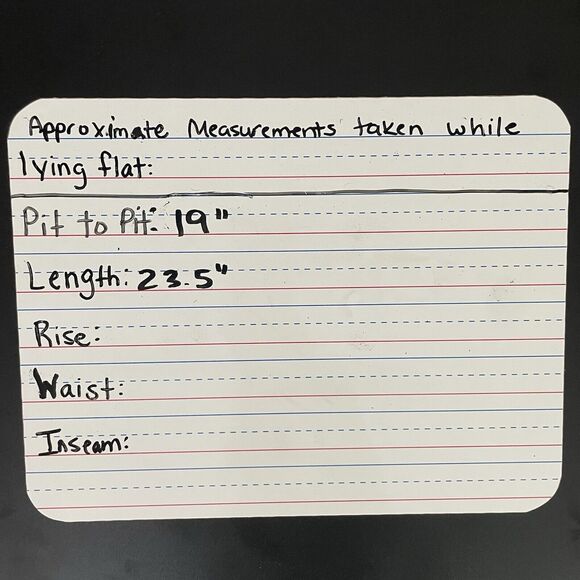 Approximate Measurements taken while
lying flat:
Pit to Pit: 19"
Length: 23.5"
Rise:
Waist:
Inseam: